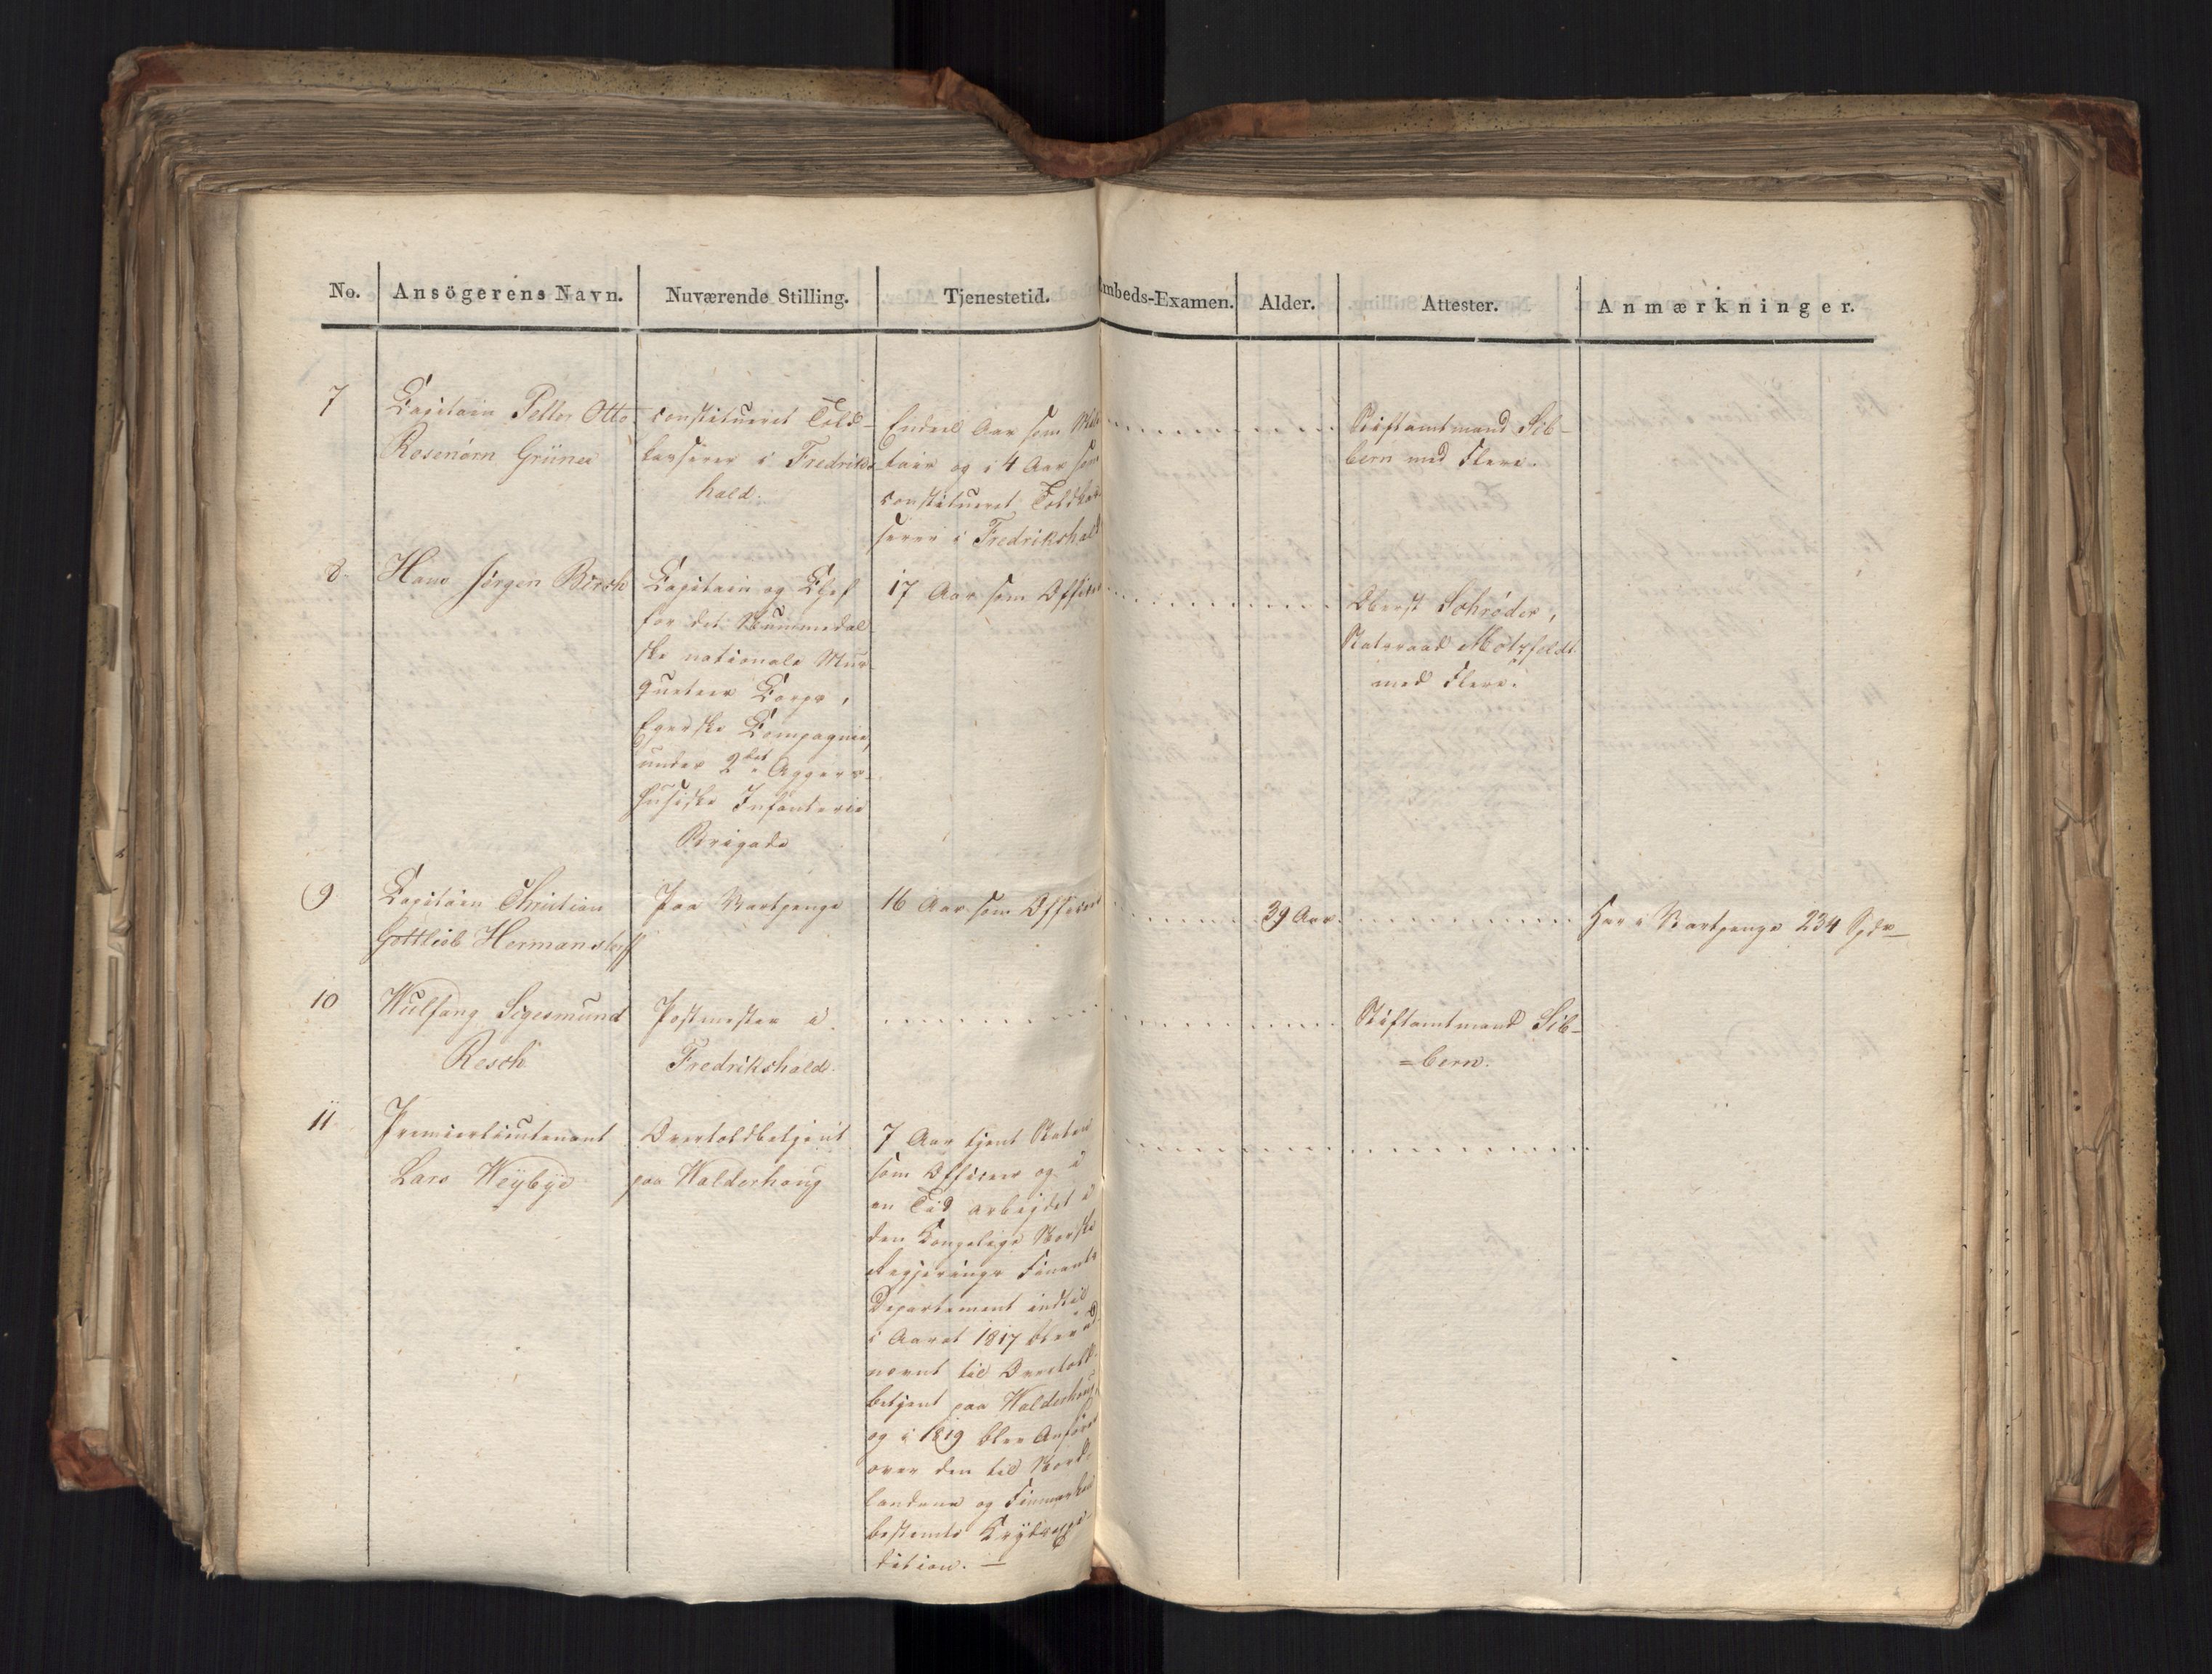 No. Ansögerens Navn. Nuværende Stilling. Tjenestetid. Embeds-Examen. Alder. Attester. Anmærkninger.
7
Capitain Petter Otto
Rosenørn Grüner
constitueret Told-
kasserer i Fredriks
hald.
Endeel Aar som Mili
tair og i 4 Aar som
constitueret Toldkas
serer i Fredrikshald
Stiftamtmand Sib-
bern med Flere.
8.
Hans Jørgen Birch
Capitain og Chef
for det Nummedal
ske nationale Mus
queteer Corps,
Egerske Compagnie,
under 2det Aggers-
husiske Infanterie
Brigade
17 Aar som Officier
Oberst Schrøder,
Statsraad Motzfeldt
med Flere.
9
Capitain Christian
Gottlieb Hermansdorff
Paa Vartpenge
16 Aar som Officier
39 Aar.
Har i Vartpenge 234 Spdr
10
Wulfang Sigismund
Resch
Postmester i
Fredrikshald.
Stiftamtmand Sib-
=bern.
11
Premierlieutenant
Lars Weybye
Overtoldbetjent
paa Walderhoug
7 Aar tjent Staten
som Officier og i
en Tid arbeidet i
den Kongelige Norske
Regjerings Finants
Departement indtil
i Aaret 1817 blev ud
nævnt til Overtold
betjent paa Walderhoug,
og i 1819 blev Anfører
over den til Nord-
landene og Finmarken
bestemte Krydsexpe
dition. —